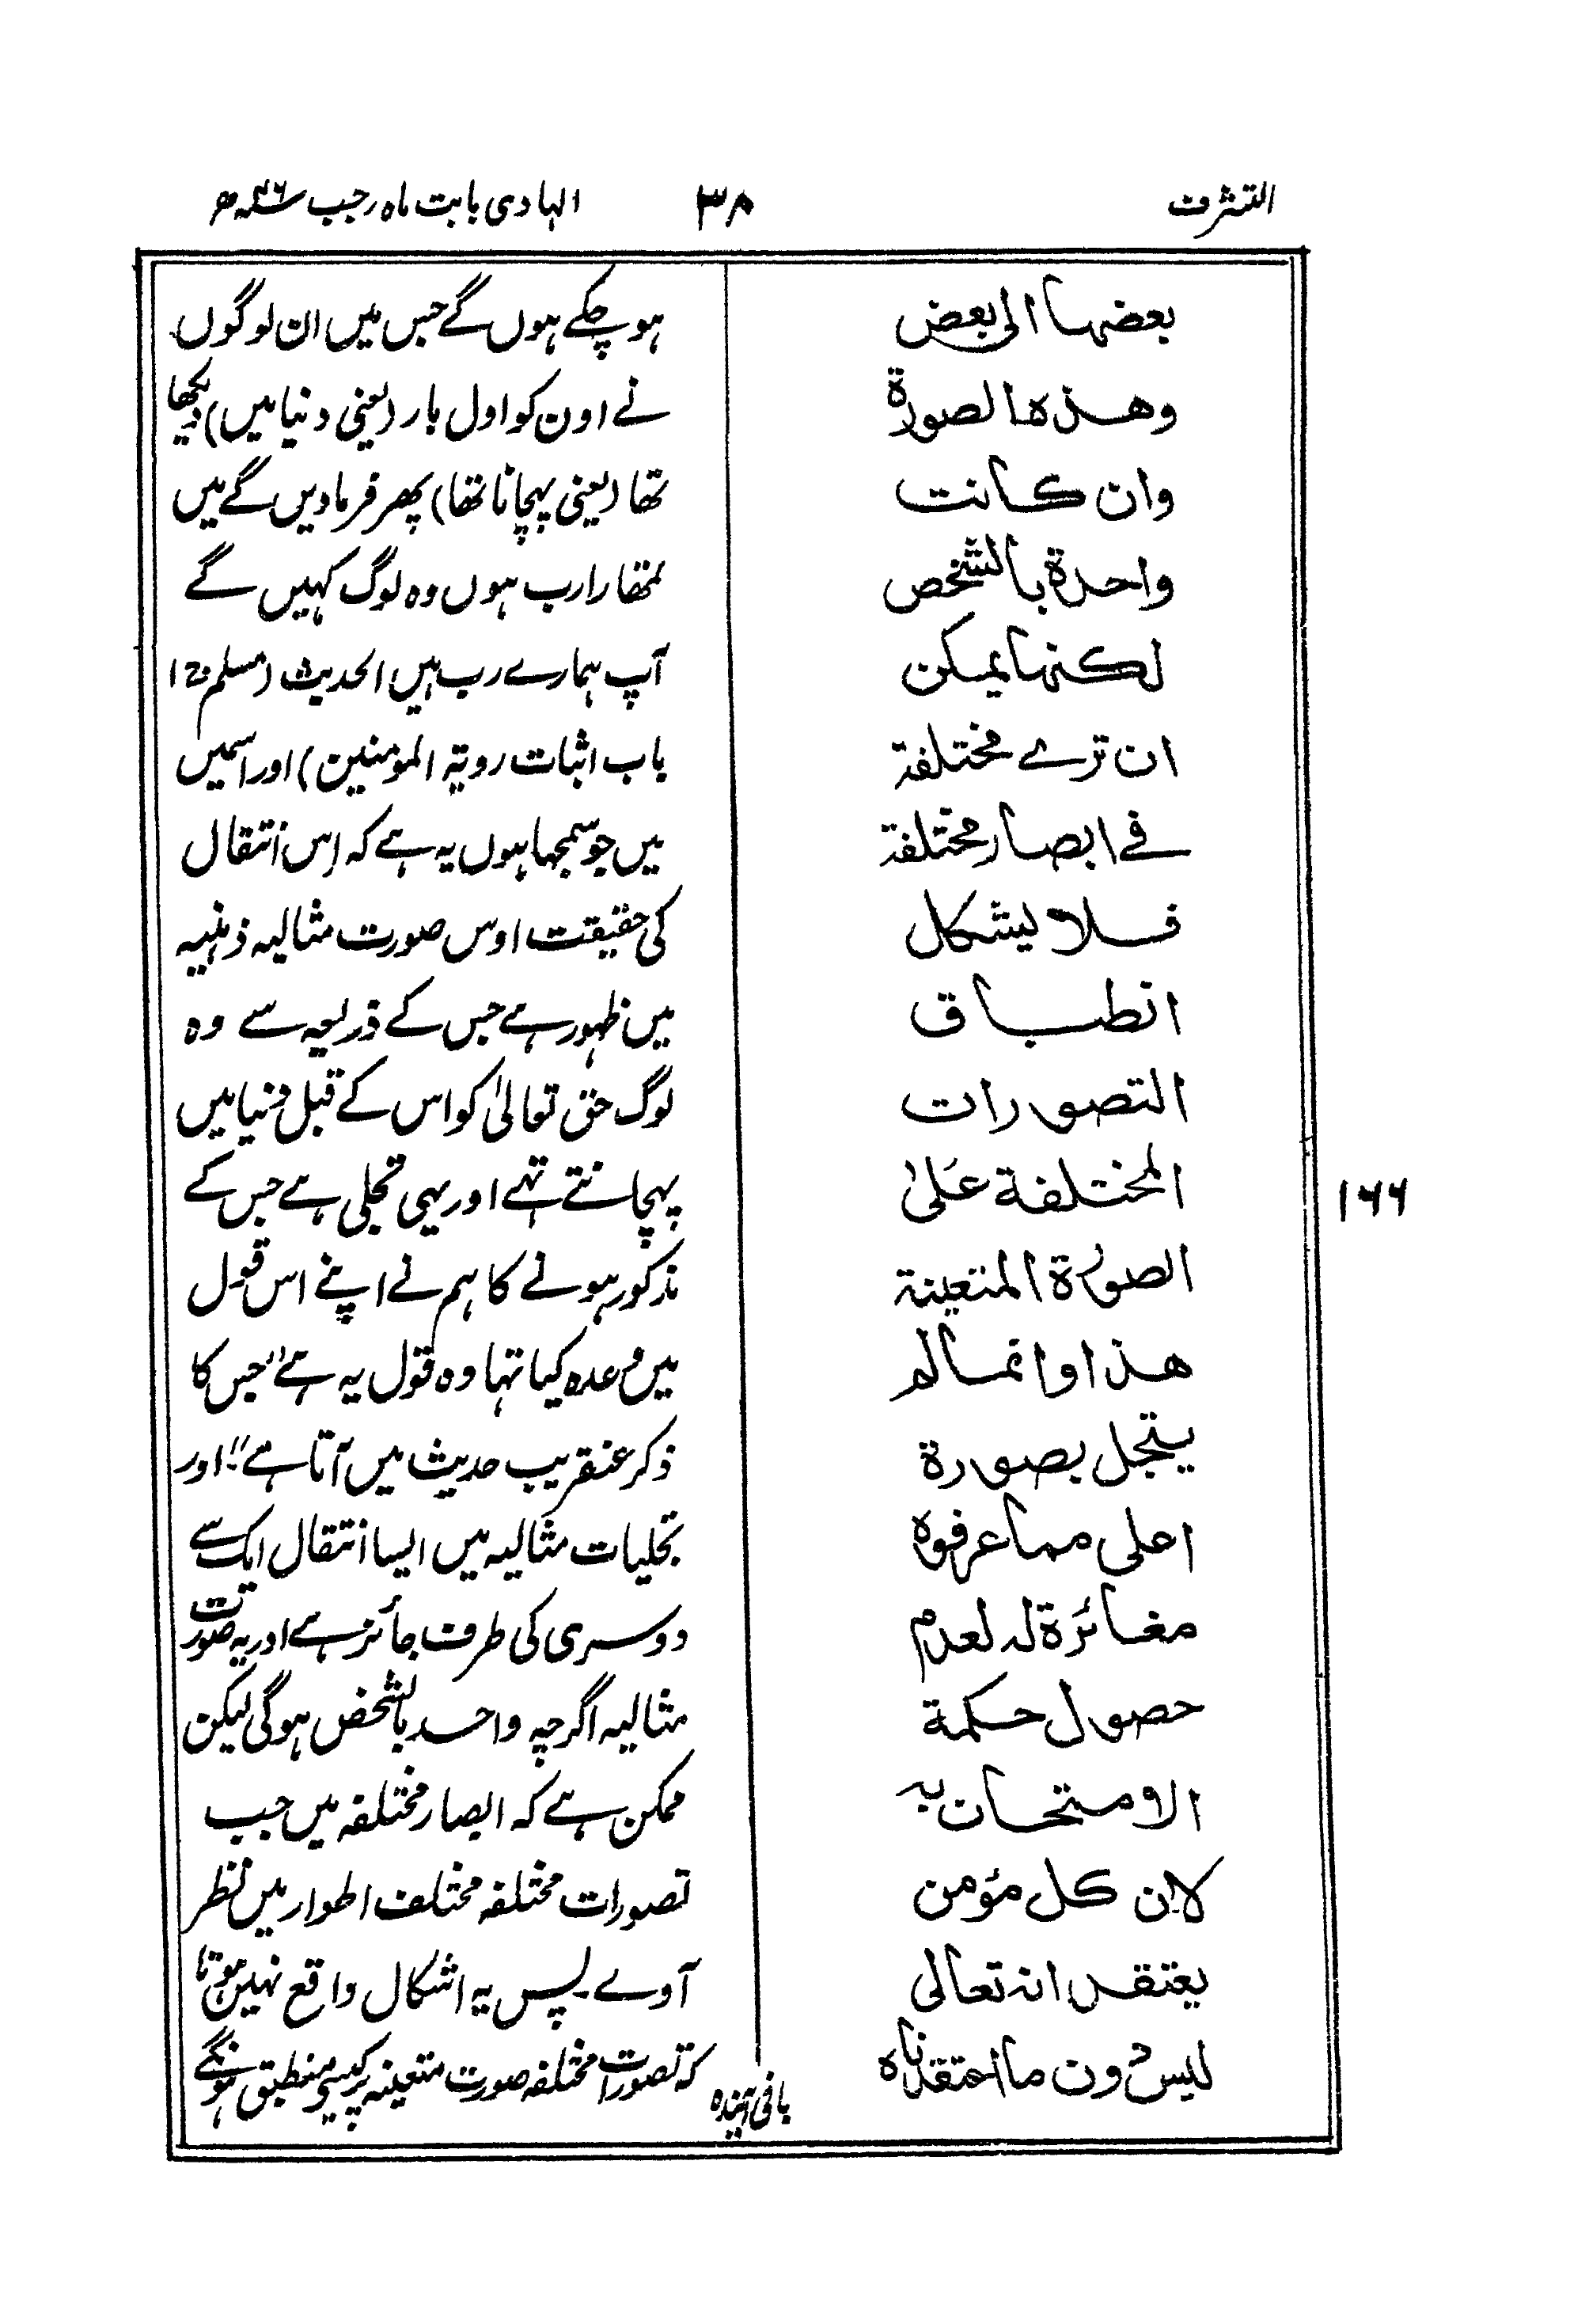 التشرف
۳۸
الہادی بابت ماہ رجب ۴۶ھ
بعضها الى بعض
وهذه الصورة
وان كانت
واحدة بالشخص
لكنها يمكن
ان ترے مختلفة
فے ابصار مختلفة
فلا يشكل
انطباق
التصورات
المختلفة على
الصورة المتعينة
هذا وانما لم
يتجل بصورة
اعلى مما عرفوه
مغائرة له لعدم
حصول حكمة
الامتحان به
لان كل مؤمن
يعتقد انه تعالى
ليس دون ما اعتقدناه
۱۶۶
ہو چکے ہوں گے جس میں ان لوگوں
نے اون کو اول بار (یعنی دنیا میں) دیکھا
تھا (یعنی پہچانا تھا) پھر فرمادیں گے میں
تمھارا رب ہوں وہ لوگ کہیں گے
آپ ہمارے رب ہیں الحدیث (مسلم ج ۱
باب اثبات رویۃ المومنین) اور اسمیں
میں جو سمجہا ہوں یہ ہے کہ اس انتقال
کی حقیقت اوس صورت مثالیہ ذہنیہ
میں ظہور ہے جس کے ذریعہ سے وہ
لوگ حق تعالیٰ کو اس کے قبل دنیا میں
پہچانتے تہے اور یہی تجلی ہے جس کے
مذکور ہونے کا ہم نے اپنے اس قول
میں وعدہ کیا تہا وہ قول یہ ہے "جس کا
ذکر عنقریب حدیث میں آتا ہے"۔ اور
تجلیات مثالیہ میں ایسا انتقال ایک سے
دوسری کی طرف جائز ہے اور یہ صورت
مثالیہ اگرچہ واحد بالشخص ہوگی لیکن
ممکن ہے کہ ابصار مختلفہ میں جب
تصورات مختلفہ مختلف اطوار میں نظر
آوے۔ پس یہ اشکال واقع نہیں ہوتا
کہ تصورات مختلفہ صورت متعینہ پر کیسے منطبق ہونگے
باقی آیندہ